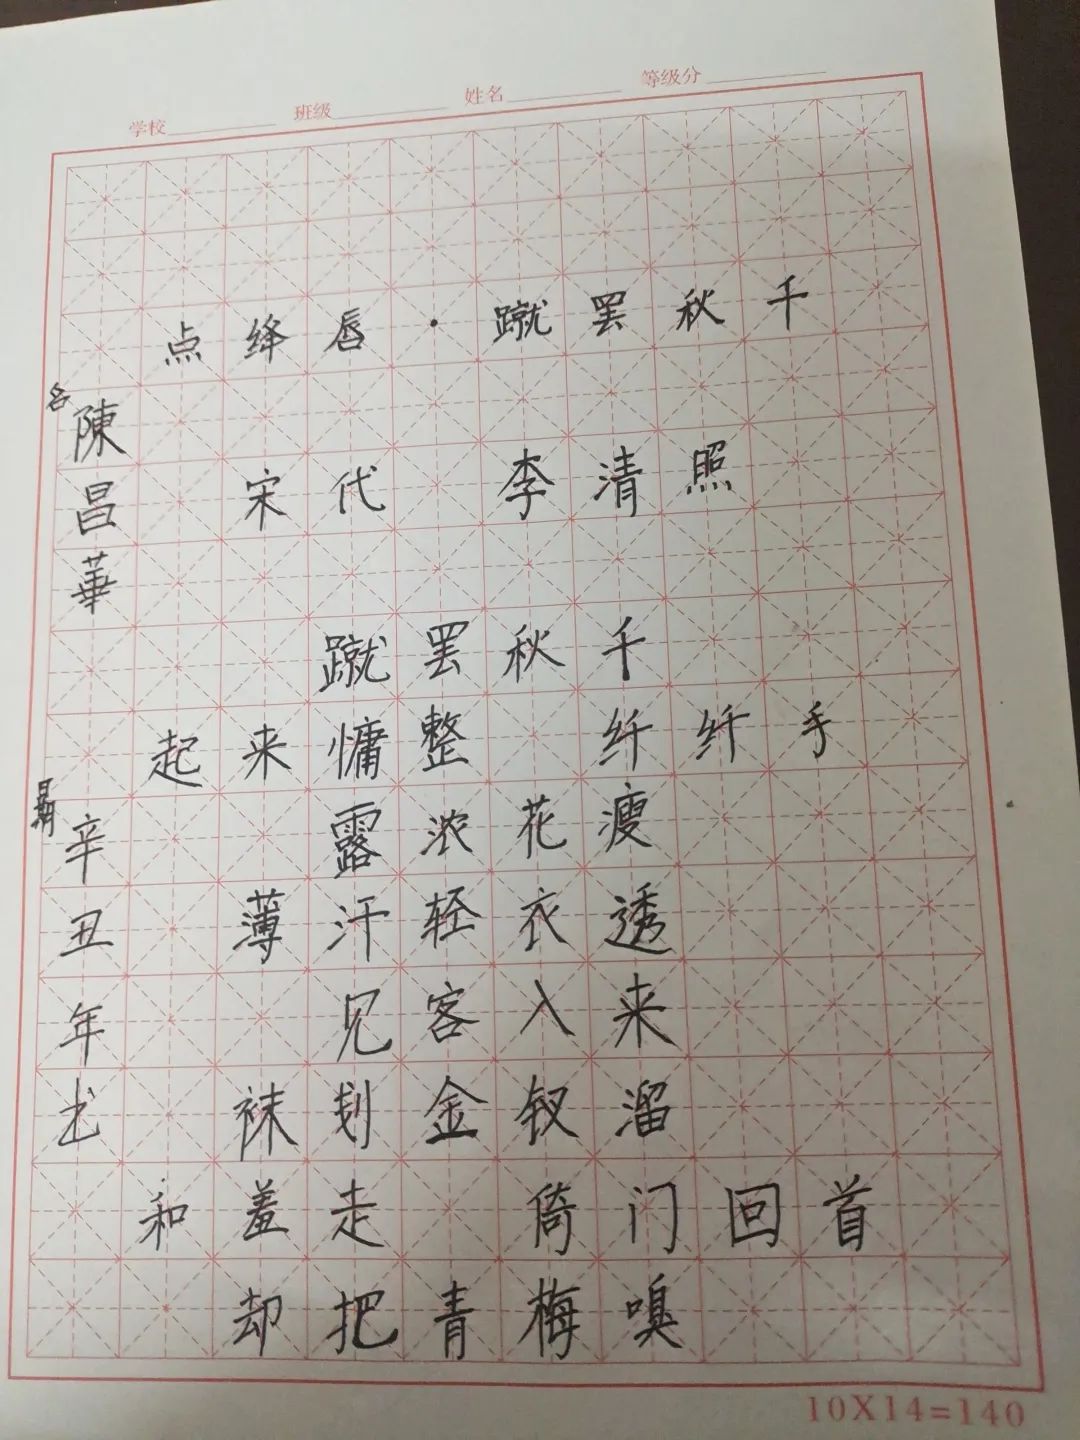 学校 班级 姓名 等级分
点绛唇·蹴罢秋千
宋代 李清照
蹴罢秋千
起来慵整 纤纤手
露浓花瘦
薄汗轻衣透
见客入来
袜刬金钗溜
和羞走 倚门回首
却把青梅嗅
名
陳昌華
日期
辛丑年书
10X14=140